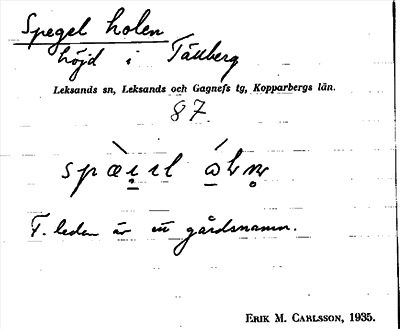 Spegelholen
höjd i Tällberg
Leksands sn, Leksands och Gagnefs tg, Kopparbergs län.
87.
F. leden är ett gårdsnamn.
ERIK M. CARLSSON, 1935.